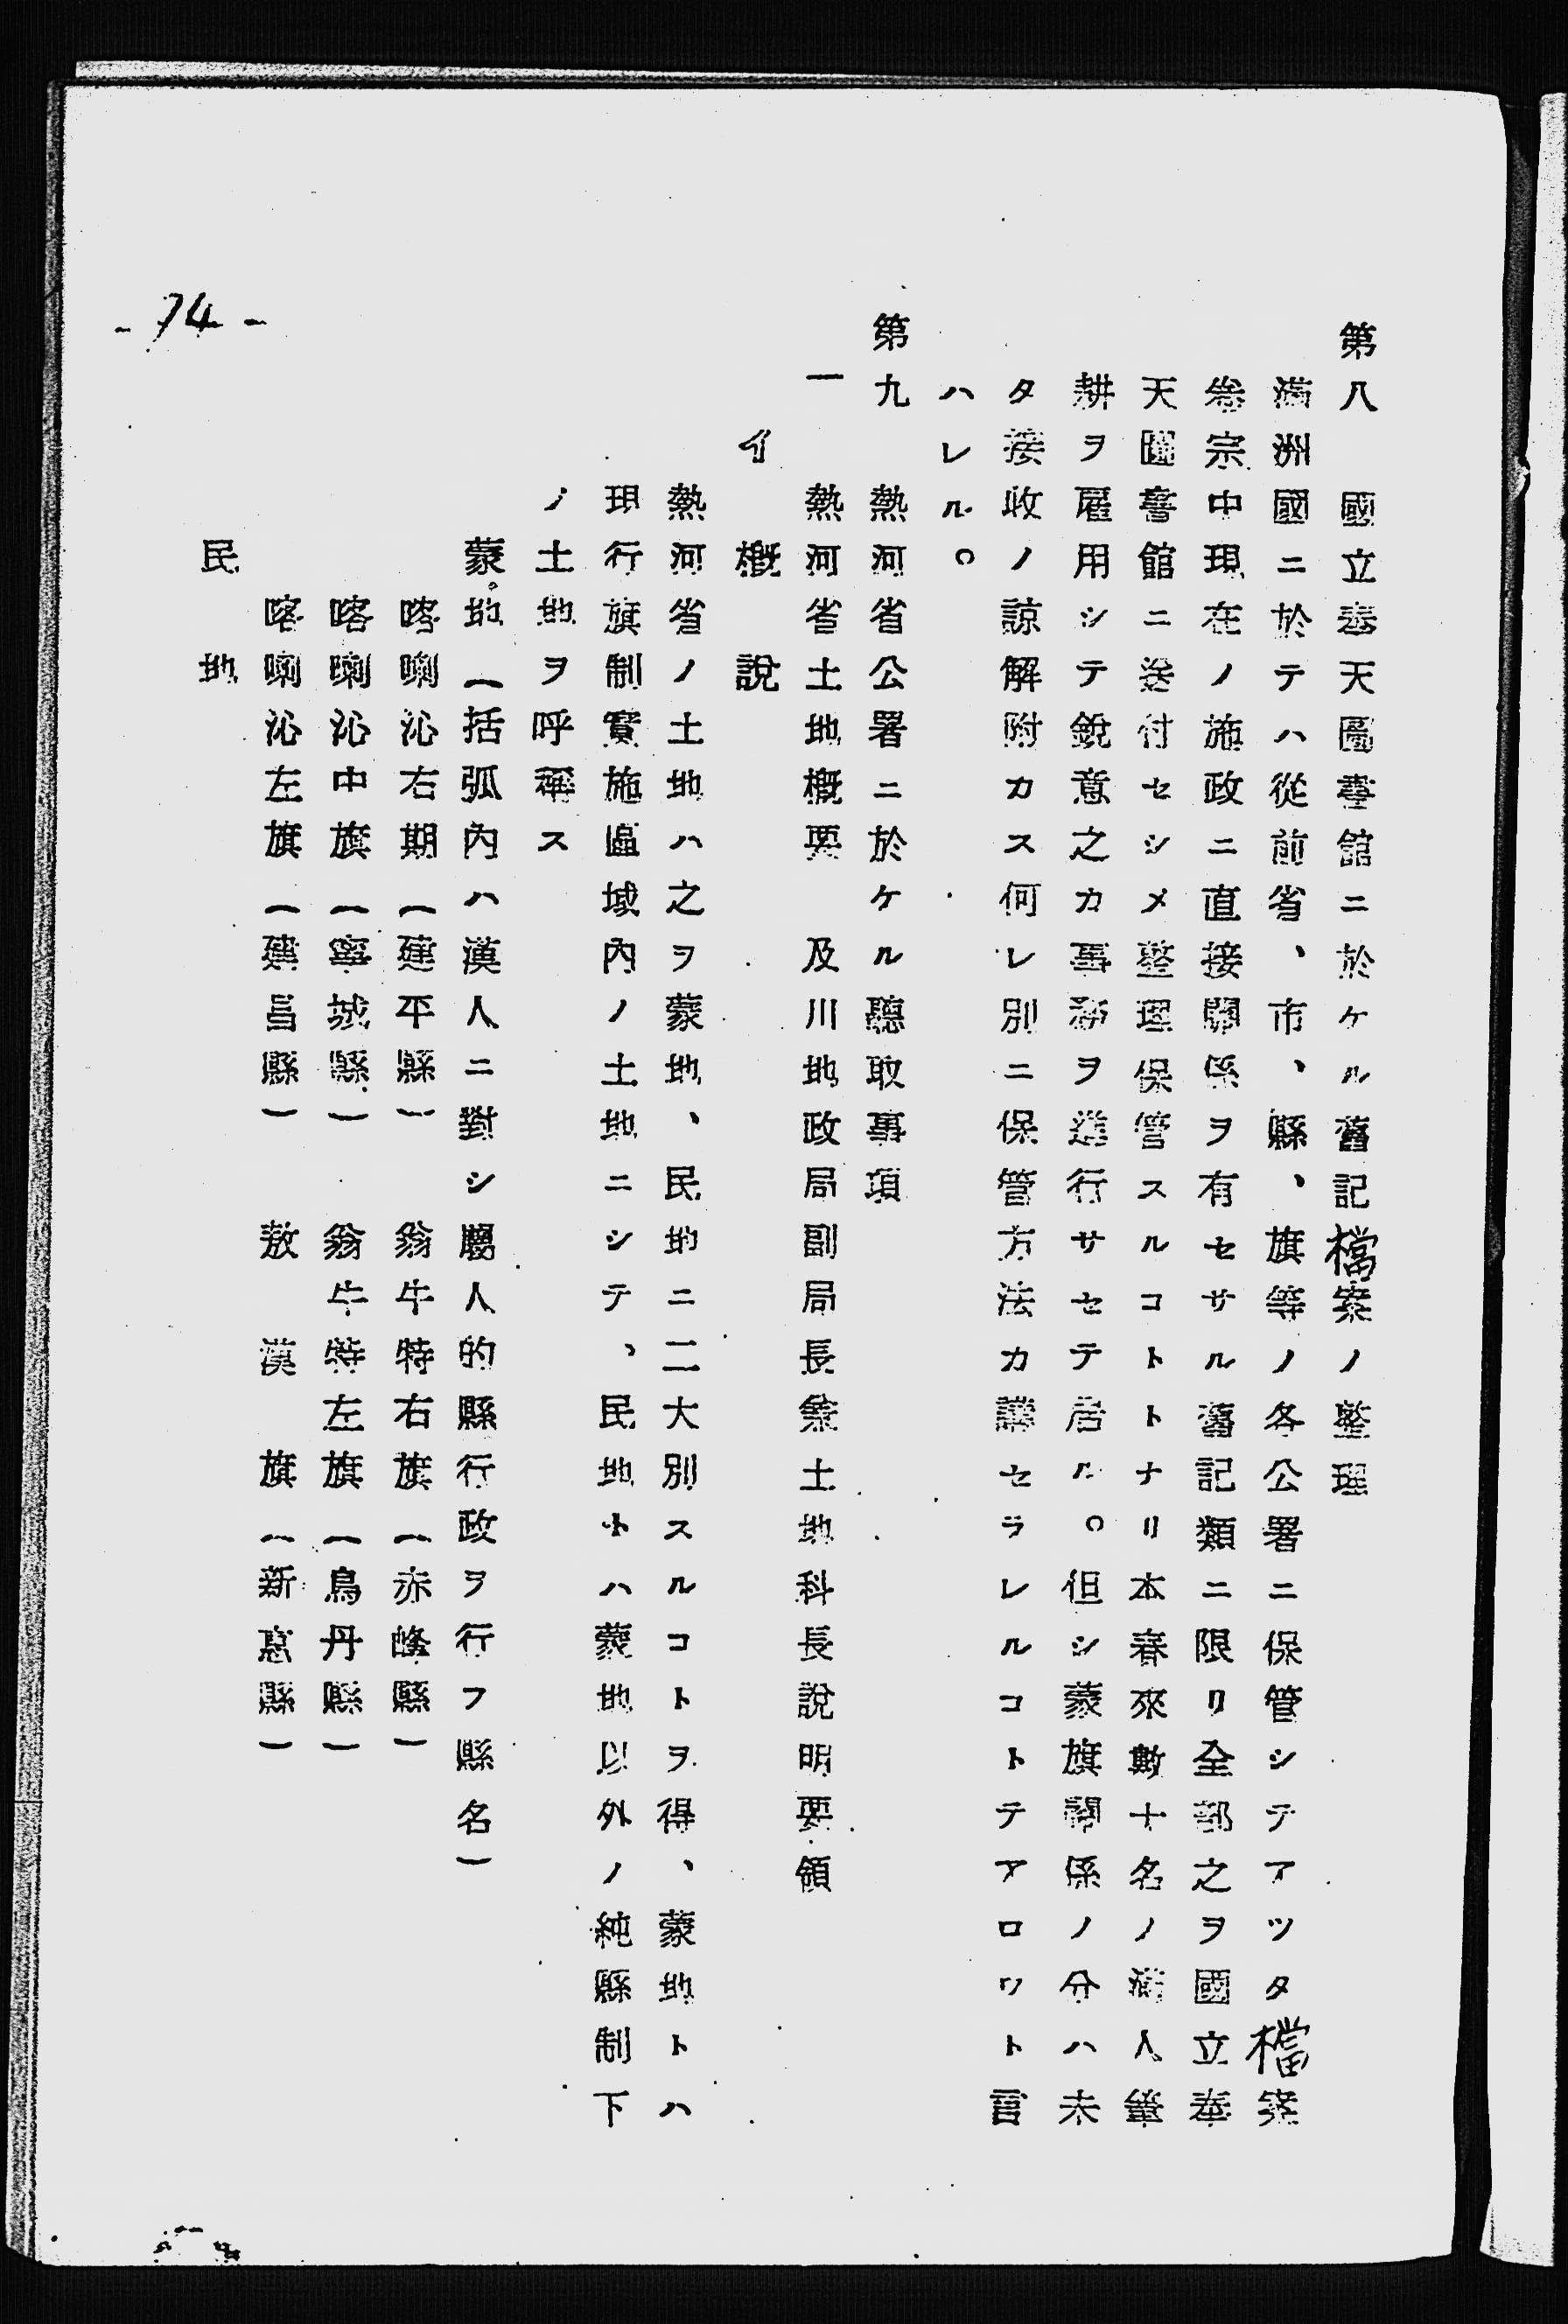 第八　國立奉天圖書館ニ於ケル舊記檔案ノ整理
滿洲國ニ於テハ從前省、市、縣、旗等ノ各公署ニ保管シテアツタ檔案
卷宗中現在ノ施政ニ直接關係ヲ有セサル舊記類ニ限リ全部之ヲ國立奉
天圖書館ニ送付セシメ整理保管スルコトトナリ本春來數十名ノ滿人筆
耕ヲ雇用シテ銳意之カ事務ヲ進行サセテ居ル。但シ蒙旗關係ノ分ハ未
タ接收ノ諒解附カス何レ別ニ保管方法カ講セラレルコトテアロウト言
ハレル。
第九　熱河省公署ニ於ケル聽取事項
一　熱河省土地槪要　及川地政局副局長兼土地科長說明要領
イ　槪　說
熱河省ノ土地ハ之ヲ蒙地、民地ニ二大別スルコトヲ得、蒙地トハ
現行旗制實施區域內ノ土地ニシテ、民地トハ蒙地以外ノ純縣制下
ノ土地ヲ呼稱ス
蒙地（括弧內ハ漢人ニ對シ屬人的縣行政ヲ行フ縣名）
喀喇沁右期（建平縣）　翁牛特右旗（赤峰縣）
喀喇沁中旗（寧城縣）　翁牛特左旗（鳥丹縣）
喀喇沁左旗（建昌縣）　敖漢旗（新惠縣）
民　地
-74-